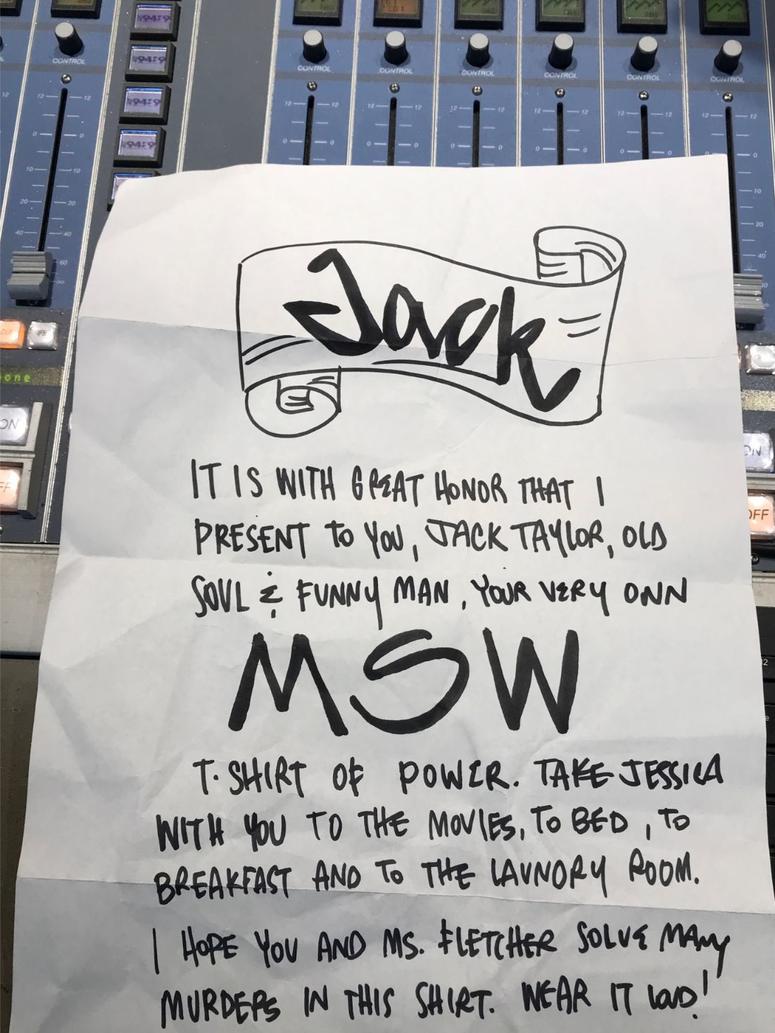 CONTROL CONTROL CONTROL CONTROL CONTROL CONTROL CONTROL
Jack
IT IS WITH GREAT HONOR THAT I
PRESENT TO YOU, JACK TAYLOR, OLD
SOUL & FUNNY MAN, YOUR VERY OWN
MSW
T-SHIRT OF POWER. TAKE JESSICA
WITH YOU TO THE MOVIES, TO BED, TO
BREAKFAST AND TO THE LAUNDRY ROOM.
I HOPE YOU AND MS. FLETCHER SOLVE MANY
MURDERS IN THIS SHIRT. WEAR IT LOUD!
one
ON
ON
OFF